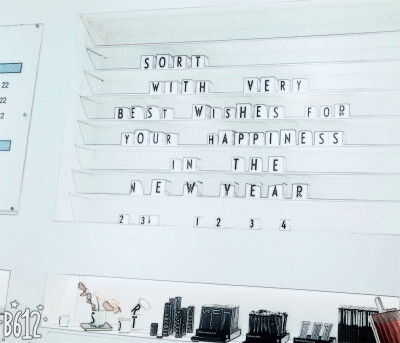 SORT
WITH VERY
BEST WISHES FOR
YOUR HAPPINESS
IN THE
NEW YEAR
2 3
1 2 3 4
22
22
2
B612